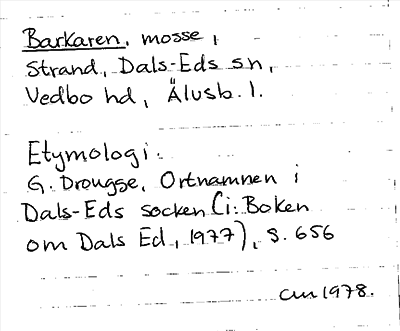 Barkaren, mosse,
Strand, Dals-Eds sn,
Vedbo hd, Älvsb. l.
Etymologi:
G. Drougge, Ortnamnen i
Dals-Eds socken (i: Boken
om Dals Ed, 1977), s. 656
CM 1978.